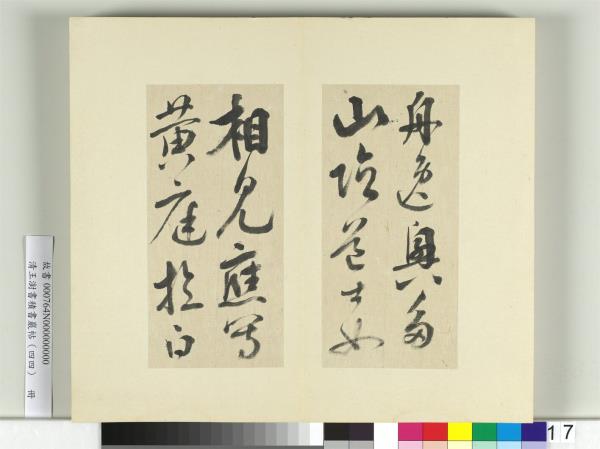 舟逸興多
山陰道士如
相見應寫
黃庭換白
故書 000764N000000000
清王澍書積書巖帖（四四） 冊
17